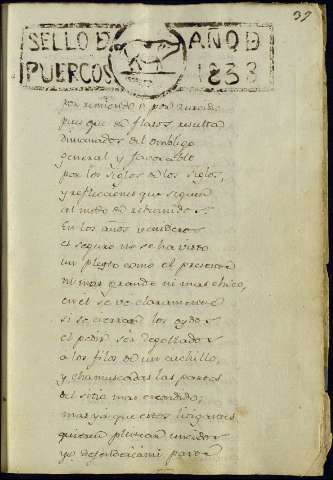 39
SELLO D. AÑO D
PUERCOS 1838
por remiendo o por zurcido
pues que de flatos resulta
dimanados del ombligo
general y favorable
por los siglos de los siglos,
y reflecciones que siguen
al modo de rebramidos.
En los años venideros
el seguro no se ha visto
un pleyto como el presente
ni mas grande ni mas chico,
en el se ve claramente
si se cierran los oydos
el pedir ser degollados
a los filos de un cuchillo,
y chamuscadas las partes
del sitio mas escondido;
mas ya que estos litigantes
quieren pleytear unidos
yo defenderé mi parte